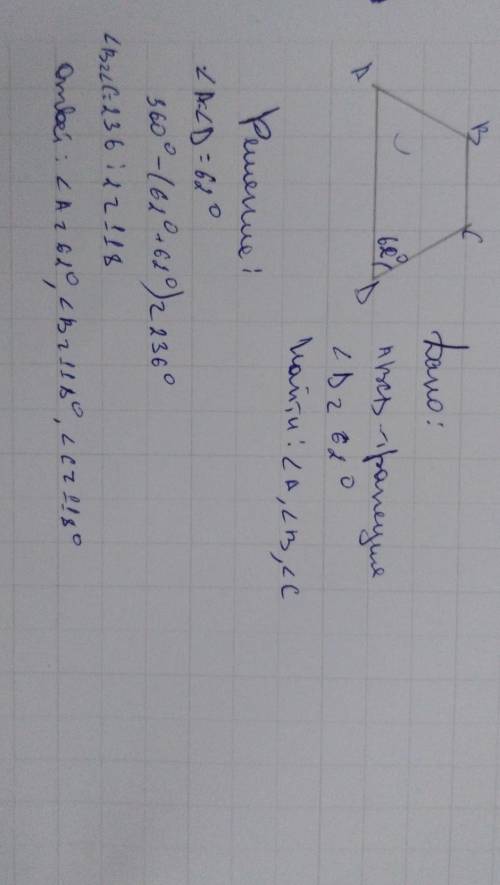 A
B
C
D
62°
Дано:
ABCD - трапеция
∠D = 62°
Найти: ∠A, ∠B, ∠C
Решение:
∠A=∠D = 62°
360° - (62° + 62°) = 236°
∠B=∠C=236:2=118
Ответ: ∠A=62°, ∠B=118°, ∠C=118°